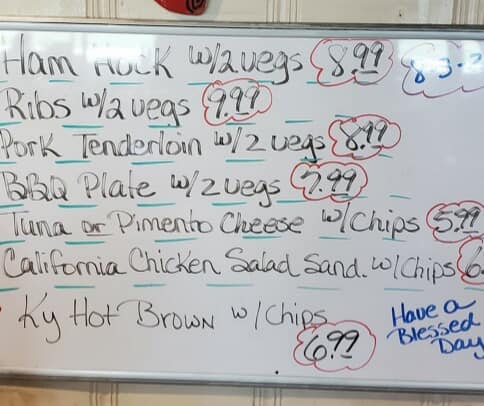 Ham Hock w/2 vegs 8.99 8-3-2
Ribs w/2 vegs 9.99
Pork Tenderloin w/2 vegs 8.99
BBQ Plate w/2 vegs 7.99
Tuna or Pimento Cheese w/Chips 5.99
California Chicken Salad Sand. w/Chips 6.
Ky Hot Brown w/Chips
6.99
Have a
Blessed
Day